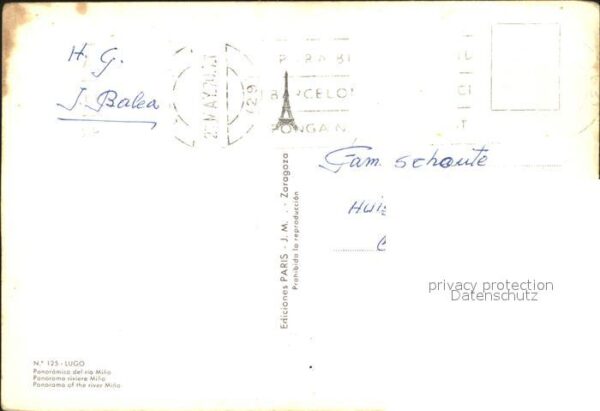 H. G.
J. Balea
PARA
BARCELO
PONGA N
(29)
Fam. schoute
Ediciones PARIS - J. M. - Zaragoza
Prohibida la reproducción
privacy protection
Datenschutz
N.º 125 - LUGO
Panorámica del río Miño
Panorama riviere Miño
Panorama of the river Miño